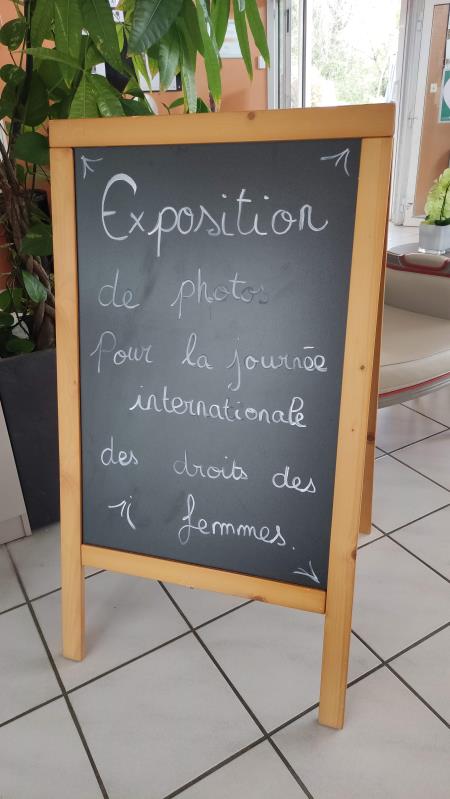 Exposition
de photos
Pour la journée
internationale
des droits des
femmes.